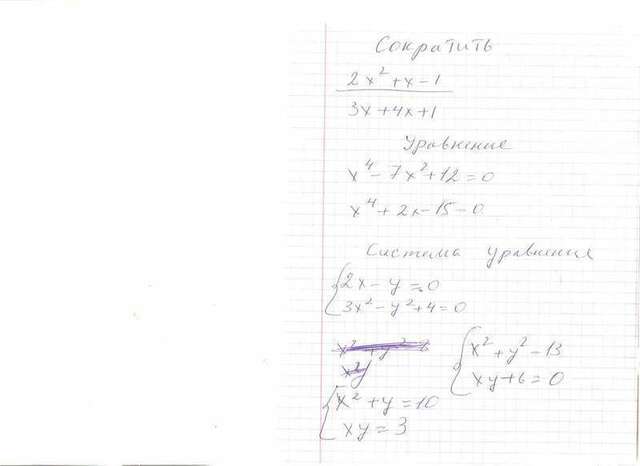 Сократить
2x² + x - 1
3x + 4x + 1
Уравнение
x⁴ - 7x² + 12 = 0
x⁴ + 2x - 15 - 0
Система уравнения
{2x - y = 0
3x² - y² + 4 = 0
{x² + y² - 13
xy + 6 = 0
{x² + y = 10
xy = 3